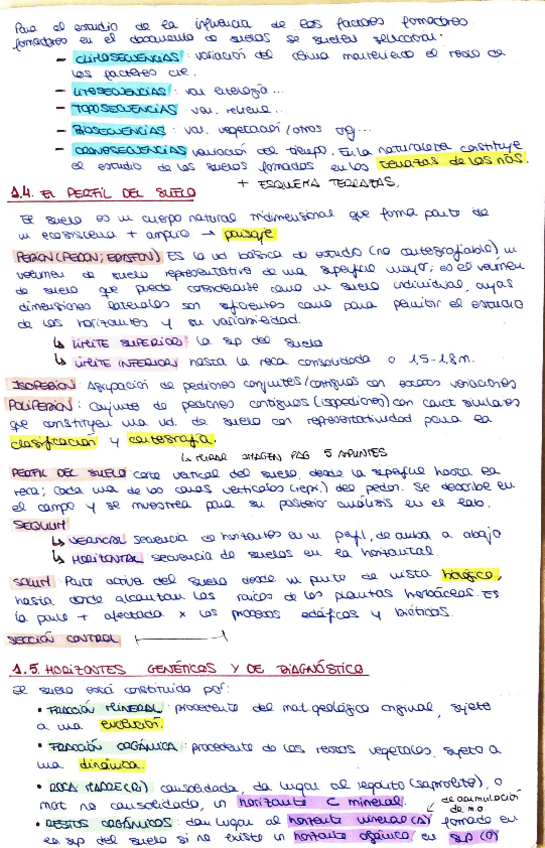 Para el estudio de la influencia de los factores formadores
formadores en el documento de suelos se suelen seleccionar:
- CLIMOSECUENCIAS: variación del clima manteniendo el resto de
los factores cte.
- LITOSECUENCIAS: var. litología...
- TOPOSECUENCIAS: var. relieve...
- BIOSECUENCIAS: var. vegetación/otros og...
- CRONOSECUENCIAS variación del tiempo. En la naturaleza constituye
el estudio de los suelos formados en las terrazas de los ríos.
+ ESQUEMA TERRAZAS.
1.4. EL PERFIL DEL SUELO
El suelo es un cuerpo natural tridimensional que forma parte de
un ecosistema + amplio → paisaje
PEDION (PEDON; EDISFON) Es la ud básica de estudio (no cartografiable) un
volumen de suelo representativo de una superficie mayor; es el volumen
de suelo que puede considerarse como un suelo individual, cuyas
dimensiones laterales son suficientes como para permitir el estudio
de los horizontes y su variabilidad.
↳ LÍMITE SUPERIOR: la sup del suelo
↳ LÍMITE INFERIOR: hasta la roca consolidada o 1,5-1,8m.
ISOPEDION: Agrupación de pediones conjuntos/contiguos con escasas variaciones
POLIPEDION: Conjunto de pediones contiguos (isopediones) con caract similares
que constituyen una ud. de suelo con representatividad para la
clasificación y cartografía.
↳ MIRAR IMAGEN PAG 5 APUNTES
PERFIL DEL SUELO corte vertical del suelo, desde la superficie hasta la
roca; Cada una de las caras verticales (repr.) del pedon. Se describe en
el campo y se muestrea para su posterior análisis en el lab.
SEQUUM
↳ VERTICAL secuencia de horizontes en un perfil, de arriba a abajo
↳ HORIZONTAL secuencia de suelos en la horizontal.
SOLUM: Parte activa del suelo desde un punto de vista biológico,
hasta donde alcanzan las raíces de las plantas herbáceas. Es
la parte + afectada x los procesos edáficos y bióticos.
SECCIÓN CONTROL
1.5. HORIZONTES GENÉTICOS Y DE DIAGNÓSTICO
El suelo está constituido por:
• FRACCIÓN MINERAL: procedente del mat geológico original, sujeto
a una evolución.
• FRACCIÓN ORGÁNICA: procedente de los restos vegetales, sujeto a
una dinámica.
• ROCA MADRE (R) consolidada, da lugar al regolito (saprolito), o
mat no consolidado, un horizonte C mineral.
de acumulación
de m.o.
• RESTOS ORGÁNICOS: dan lugar al horizonte mineral (A) formado en
la sup del suelo si no existe un horizonte orgánico en sup (O)